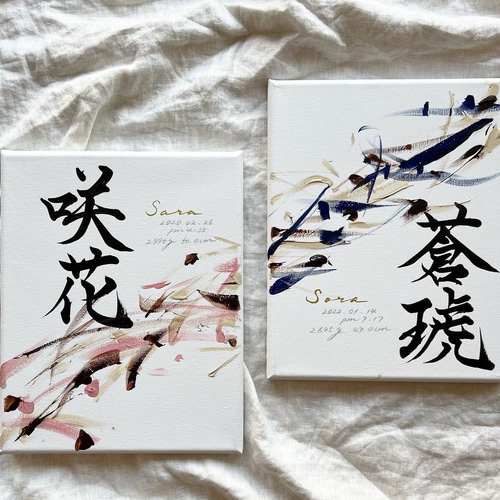 咲花
Sara
2020.02.26
pm 4:28
2,995g 50.0cm
蒼琥
Sora
2022.01.14
pm 7:17
2,845g 47.0cm